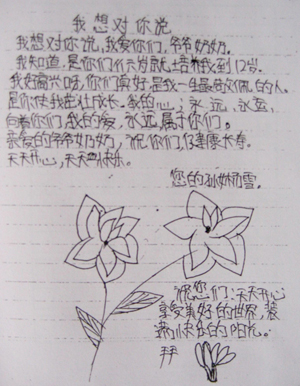 我想对你说
我想对你说,我爱你们,爷爷奶奶。
我知道,是你们从六岁就培养我到12岁。
我好高兴呀,你们真好,是我一生最敬佩的人。
是你使我茁壮成长。我的心,永远、永远、
向着你们,我的爱,永远属于你们。
亲爱的爷爷奶奶,祝你们,健康长寿。
天天开心,天天快乐。
您的孙女雪。
祝您们:天天开心
享受美好的世界,装
满快乐的阳光。